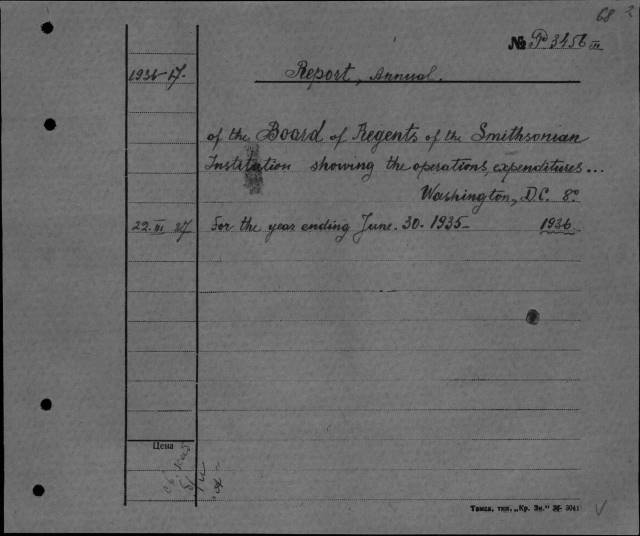 68 2
№ P 3456 III
1936-17. Report, Annual.
of the Board of Regents of the Smithsonian
Institution showing the operations, expenditures...
Washington, D.C. 8°
22.III 37 For the year ending June. 30. 1935- 1936
Цена
Томск, тип. „Кр. Зн." № 5041